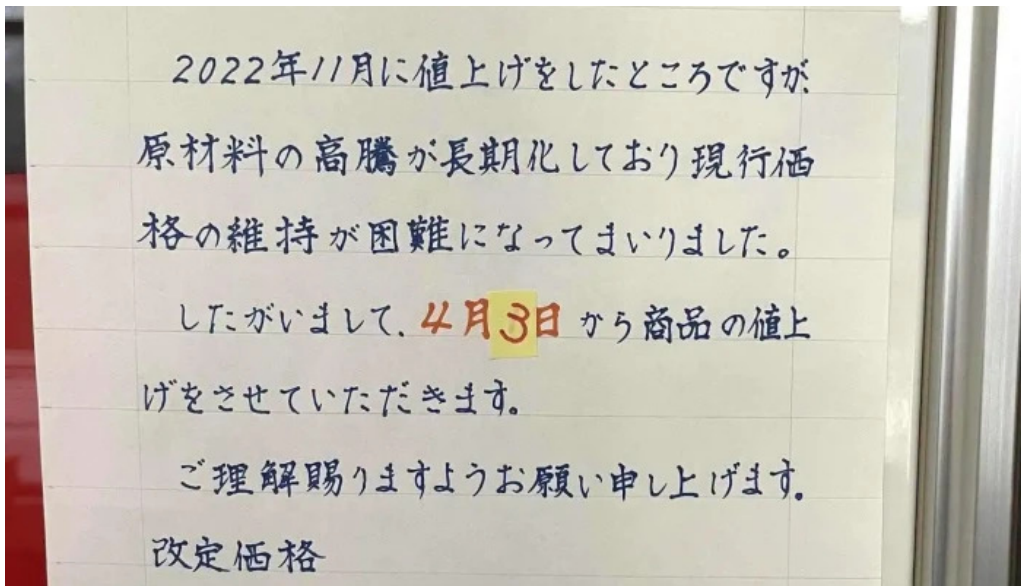 2022年11月に値上げをしたところですが、
原材料の高騰が長期化しており現行価
格の維持が困難になってまいりました。
したがいまして、4月3日から商品の値上
げをさせていただきます。
ご理解賜りますようお願い申し上げます。
改定価格